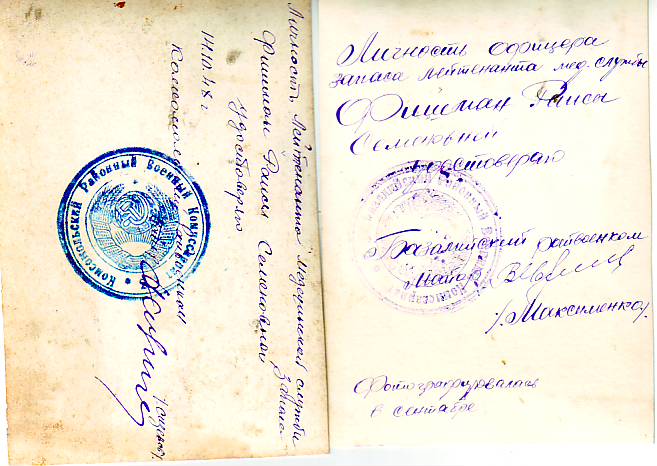 Личность лейтенанта медецинской службы
запаса
Фишман Раисы Семеновной
удостоверяю
14.10.48 г.
Комсомольский Районный Военный Комиссариат
Личность офицера
запаса лейтенанта мед. службы
Фишман Раисы
Семеновной
удостоверяю
райвоенком
Майор
/Максименко/
Фотографировалась
в сентябре